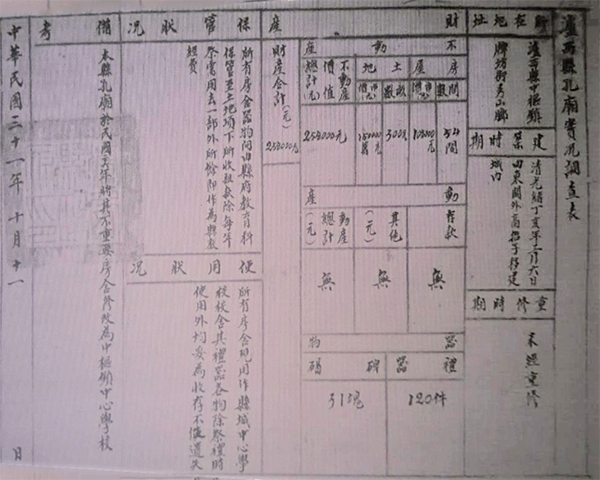 瀘西縣孔廟實況調查表
所在地址
瀘西縣中樞鎮
牌坊街秀山鄉
建築時期
清光緒丁亥年二月六日
由東關外高招子移建
城內
重修時期
未經重修
財產
不動產
房屋
間數
54間
價值(元)
108000元
土地
畝數
300畝
價值(元)
150000元
不動產價值總計(元)
258000元
動產
存款
無
其他(元)
無
動產總計(元)
無
器物
禮器
120件
碑碣
31塊
財產合計(元)
258000元
保管狀況
所有房舍器物間由縣府教育科
保管至土地項下所收租息除每年
祭需用去一部外所餘即作為縣教
經費
使用狀況
所有房舍現用作縣城中心學
校校舍其禮器各物除祭禮時
使用外均妥為收存不使遺失
備考
本縣孔廟於民國 年將其不重要房舍修改為中樞鎮中心學校
中華民國三十一年十月十一日